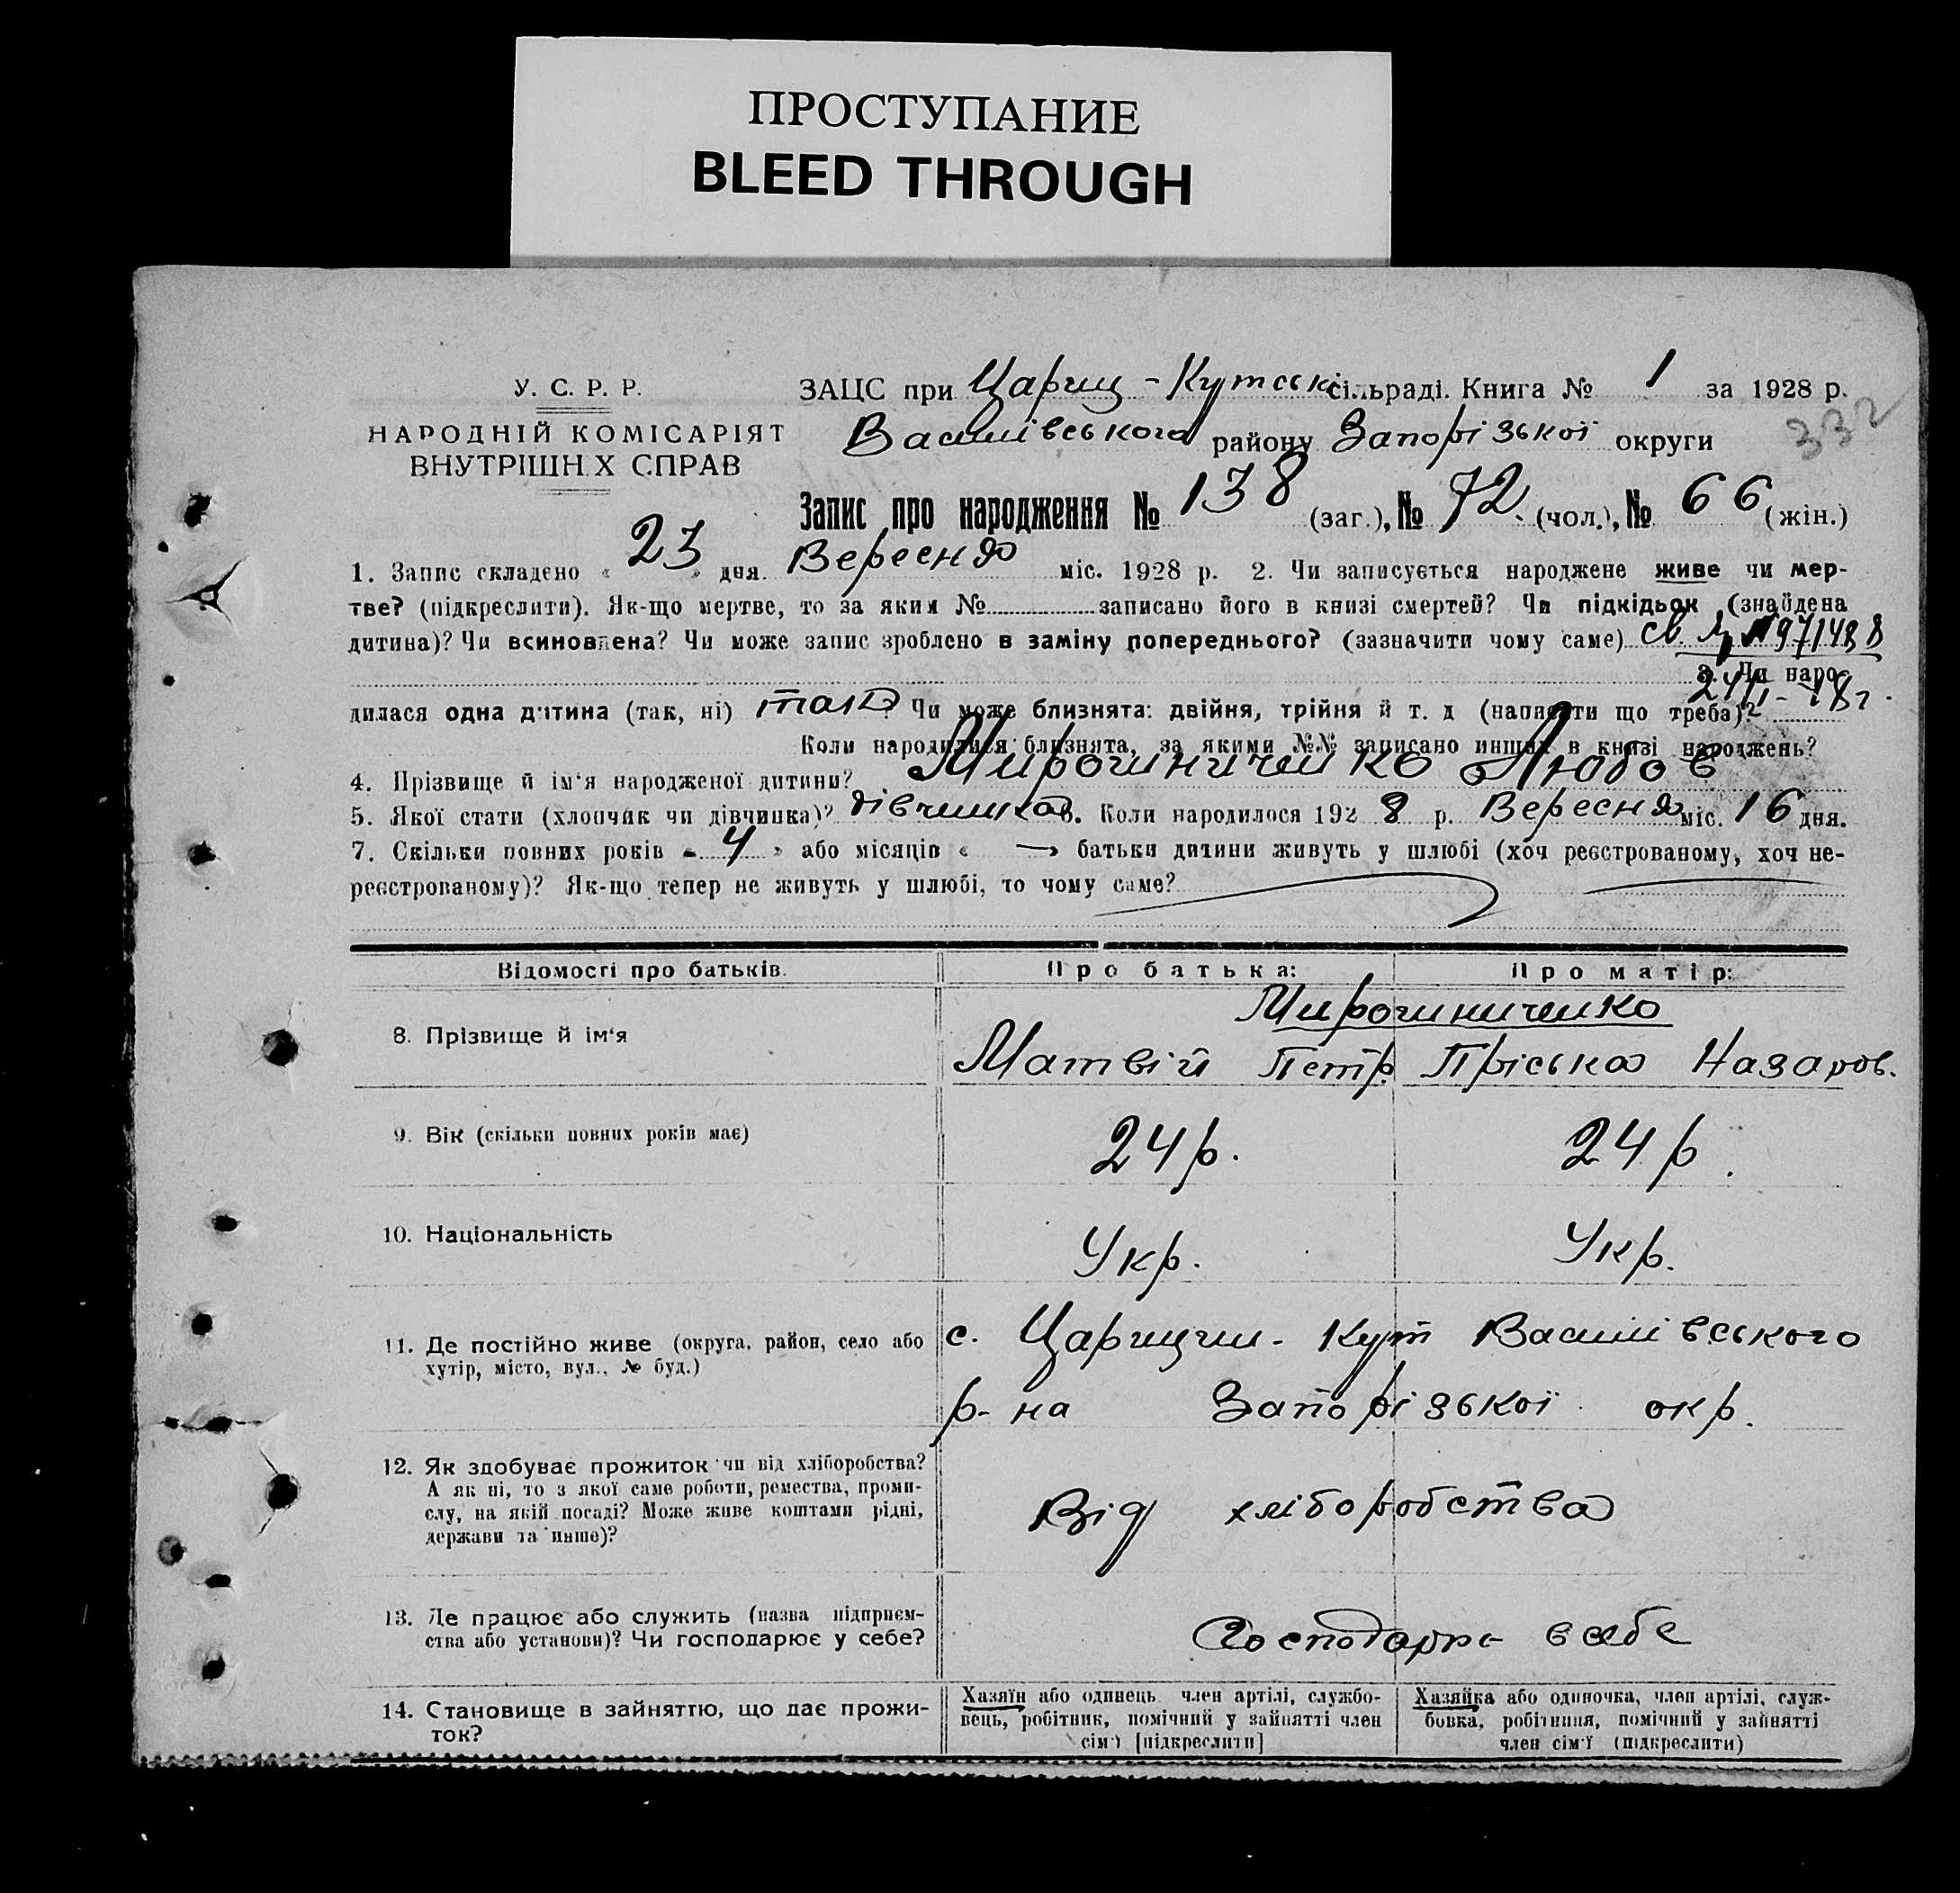 ПРОСТУПАНИЕ
BLEED THROUGH
У. С. Р. Р.
НАРОДНІЙ КОМІСАРІЯТ
ВНУТРІШН Х СПРАВ
ЗАЦС при Цариц-Кутській сільраді. Книга № 1 за 1928 р.
Василівського району Запорізької округи
332
Запис про народження № 138 (заг.), № 72 (чол.), № 66 (жін.)
1. Запис складено « 23 » дня Вересня міс. 1928 р. 2. Чи записується народжене живе чи мер-
тве? (підкреслити). Як-що мертве, то за яким № записано його в книзі смертей? Чи підкідьок (знайдена
дитина)? Чи всиновлена? Чи може запис зроблено в заміну попереднього? (зазначити чому саме)
3. Чи наро-
дилася одна дитина (так, ні) так? Чи може близнята: двійня, трійня й т. д (написати що треба)?
Коли народилися близнята, за якими №№ записано инших в книзі народжень?
4. Прізвище й ім'я народженої дитини? Мирошниченко Любов
5. Якої статі (хлопчик чи дівчинка)? дівчинка 6. Коли народилося 1928 р. Вересня міс. 16 дня.
7. Скільки повних років « 4 » або місяців « — » батьки дитини живуть у шлюбі (хоч реєстрованому, хоч не-
реєстрованому)? Як-що тепер не живуть у шлюбі, то чому саме?
Відомості про батьків. Про батька: Про матір:
Мирошниченко
8. Прізвище й ім'я Матвій Петр. Пріська Назаров.
9. Вік (скільки повних років має) 24 р. 24 р.
10. Національність Укр. Укр.
11. Де постійно живе (округа, район, село або
хутір, місто, вул., № буд.)
с. Царицин-Кут Василівського
р-на Запорізької окр.
12. Як здобуває прожиток чи від хліборобства?
А як ні, то з якої саме роботи, ремества, проми-
слу, на якій посаді? Може живе коштами рідні,
держави та инше)?
Від хліборобства
13. Де працює або служить (назва підприєм-
ства або установи)? Чи господарює у себе?
в себе
14. Становище в зайняттю, що дає прожи-
ток?
Хазяїн або одинець член артілі, службо-
вець, робітник, помічний у зайнятті член
сім'ї [підкреслити]
Хазяйка або одиночка, член артілі, служ-
бовка, робітниця, помічний у зайнятті
член сім'ї (підкреслити)